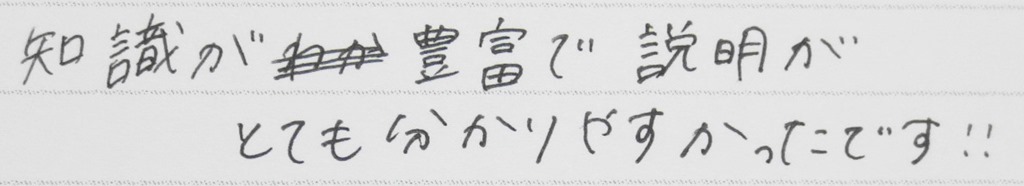 知識が豊富で説明が
とても分かりやすかったです!!